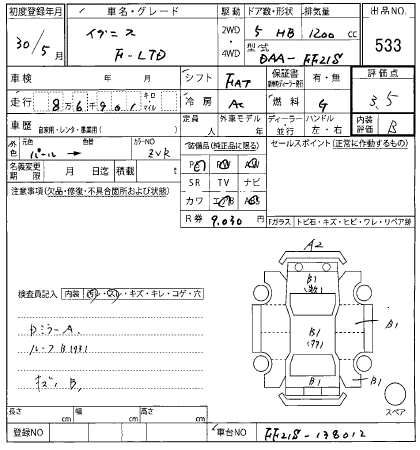 初度登録年月 車名・グレード 駆動 ドア数・形状 排気量 出品NO.
30/5月 イグニス 2WD 5 HB 1200cc 533
F-LTD 4WD 型式 DAA-FF21S
車検 年 月 シフト FAT 保証書 有・無 評価点
走行 8万6千901 キロ マイル 冷房 AC 燃料 G 3.5
車歴 自家用・レンタ・事業用( ) 定員 人 外車モデル 年 ディーラー・並行 ハンドル 左・右 内装評価 B
外色 元色 パール→ 色替 カラーNO ZVR 装備品(純正品に限る) セールスポイント(正常に作動するもの)
名義変更期限 月 日迄 積載 t
注意事項(欠品・修復・不具合箇所および状態)
SR TV ナビ
カワ
R券 9,030円 Fガラス トビ石・キズ・ヒビ・ワレ・リペア跡
A2
B1
検査員記入 内装 汚レ・スレ・キズ・キレ・コゲ・穴
ミラーA.
B1
B1
ルーフB1
B1
B1
キズ、B,
スペア
長さ cm 幅 cm 高さ cm
登録NO 車台NO FF21S-138012